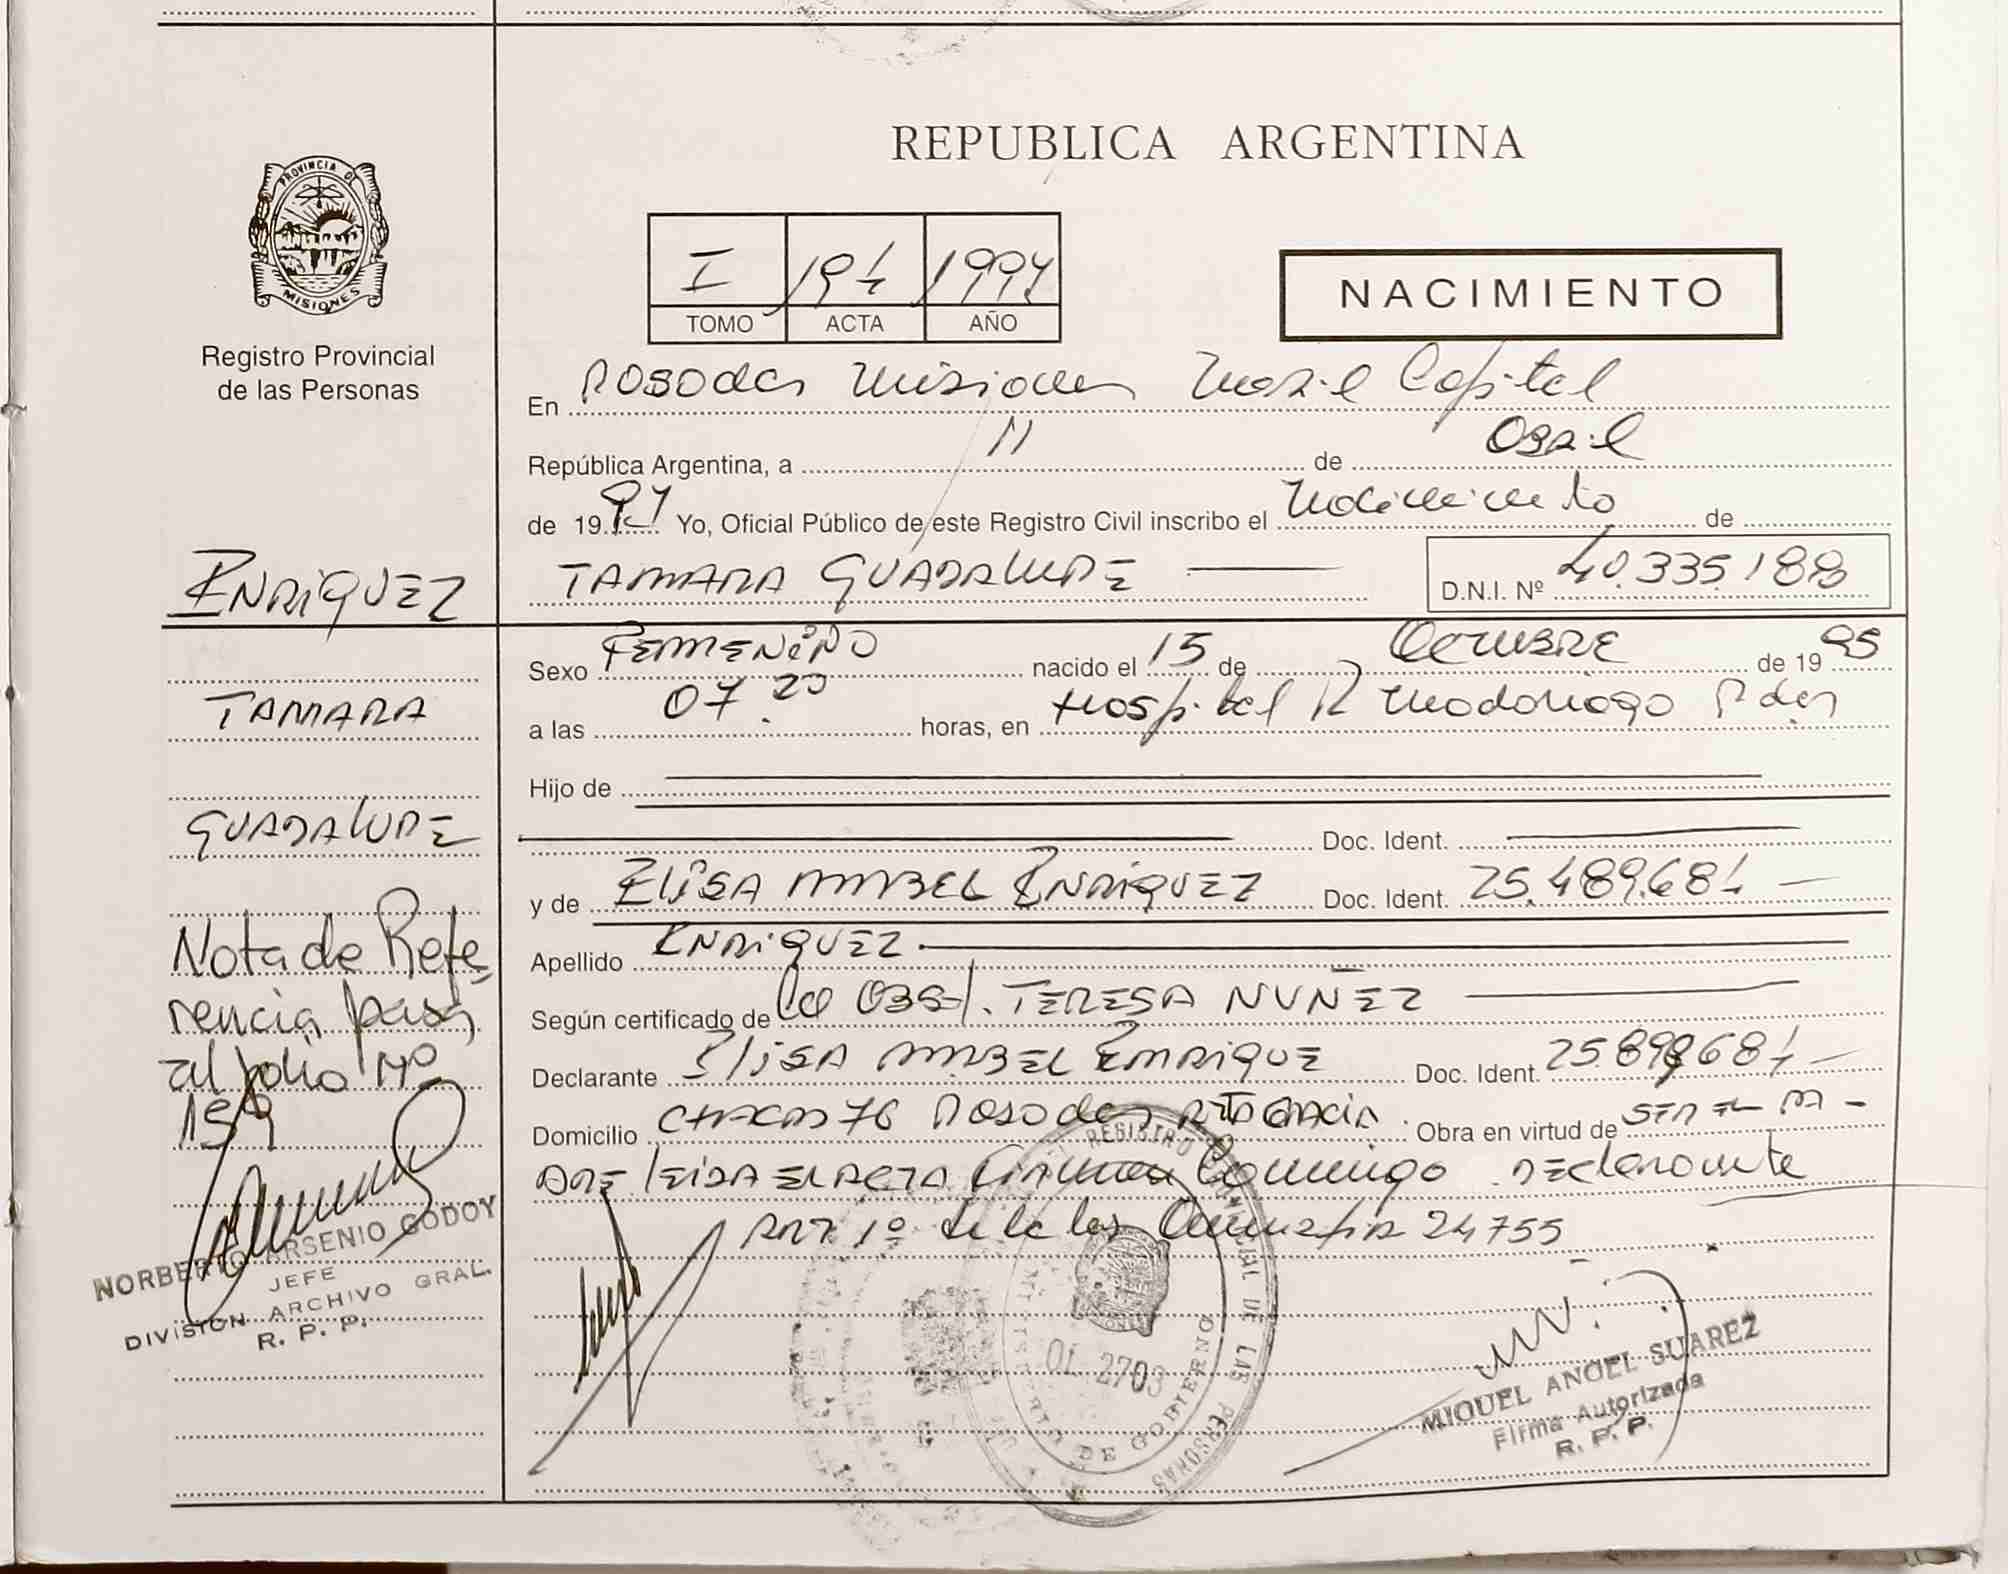 REPUBLICA ARGENTINA
PROVINCIA DE
MISIONES
Registro Provincial
de las Personas
I 194 1997
TOMO ACTA AÑO
NACIMIENTO
En Posadas Misiones Capital
República Argentina, a 11 de Abril
de 1997 Yo, Oficial Público de este Registro Civil inscribo el Nacimiento de
ENRIQUEZ
TAMARA GUADALUPE
D.N.I. Nº 40.335.188
Sexo FEMENINO nacido el 15 de OCTUBRE de 1995
a las 07.20 horas, en Hospital R Madariaga Pdas
Hijo de
Doc. Ident.
y de ELISA MABEL ENRIQUEZ Doc. Ident. 25.489.681
Apellido ENRIQUEZ
Según certificado de Obst. TERESA NUÑEZ
Declarante ELISA MABEL ENRIQUE Doc. Ident.
Domicilio CHACRA 76 Posadas Obra en virtud de SER EL M
ADRE leida EL ACTA Firman Conmigo DEClarante
ART 1º de la ley 24755
TAMARA
GUADALUPE
Nota de Refe
rencia pasa
al folio Nº
159
NORBERTO ARSENIO GODOY
JEFE
DIVISION ARCHIVO GRAL.
R. P. P.
REGISTRO PROVINCIAL DE LAS PERSONAS
MINISTERIO DE GOBIERNO
OL 2703
MIGUEL ANGEL SUAREZ
Firma Autorizada
R. P. P.